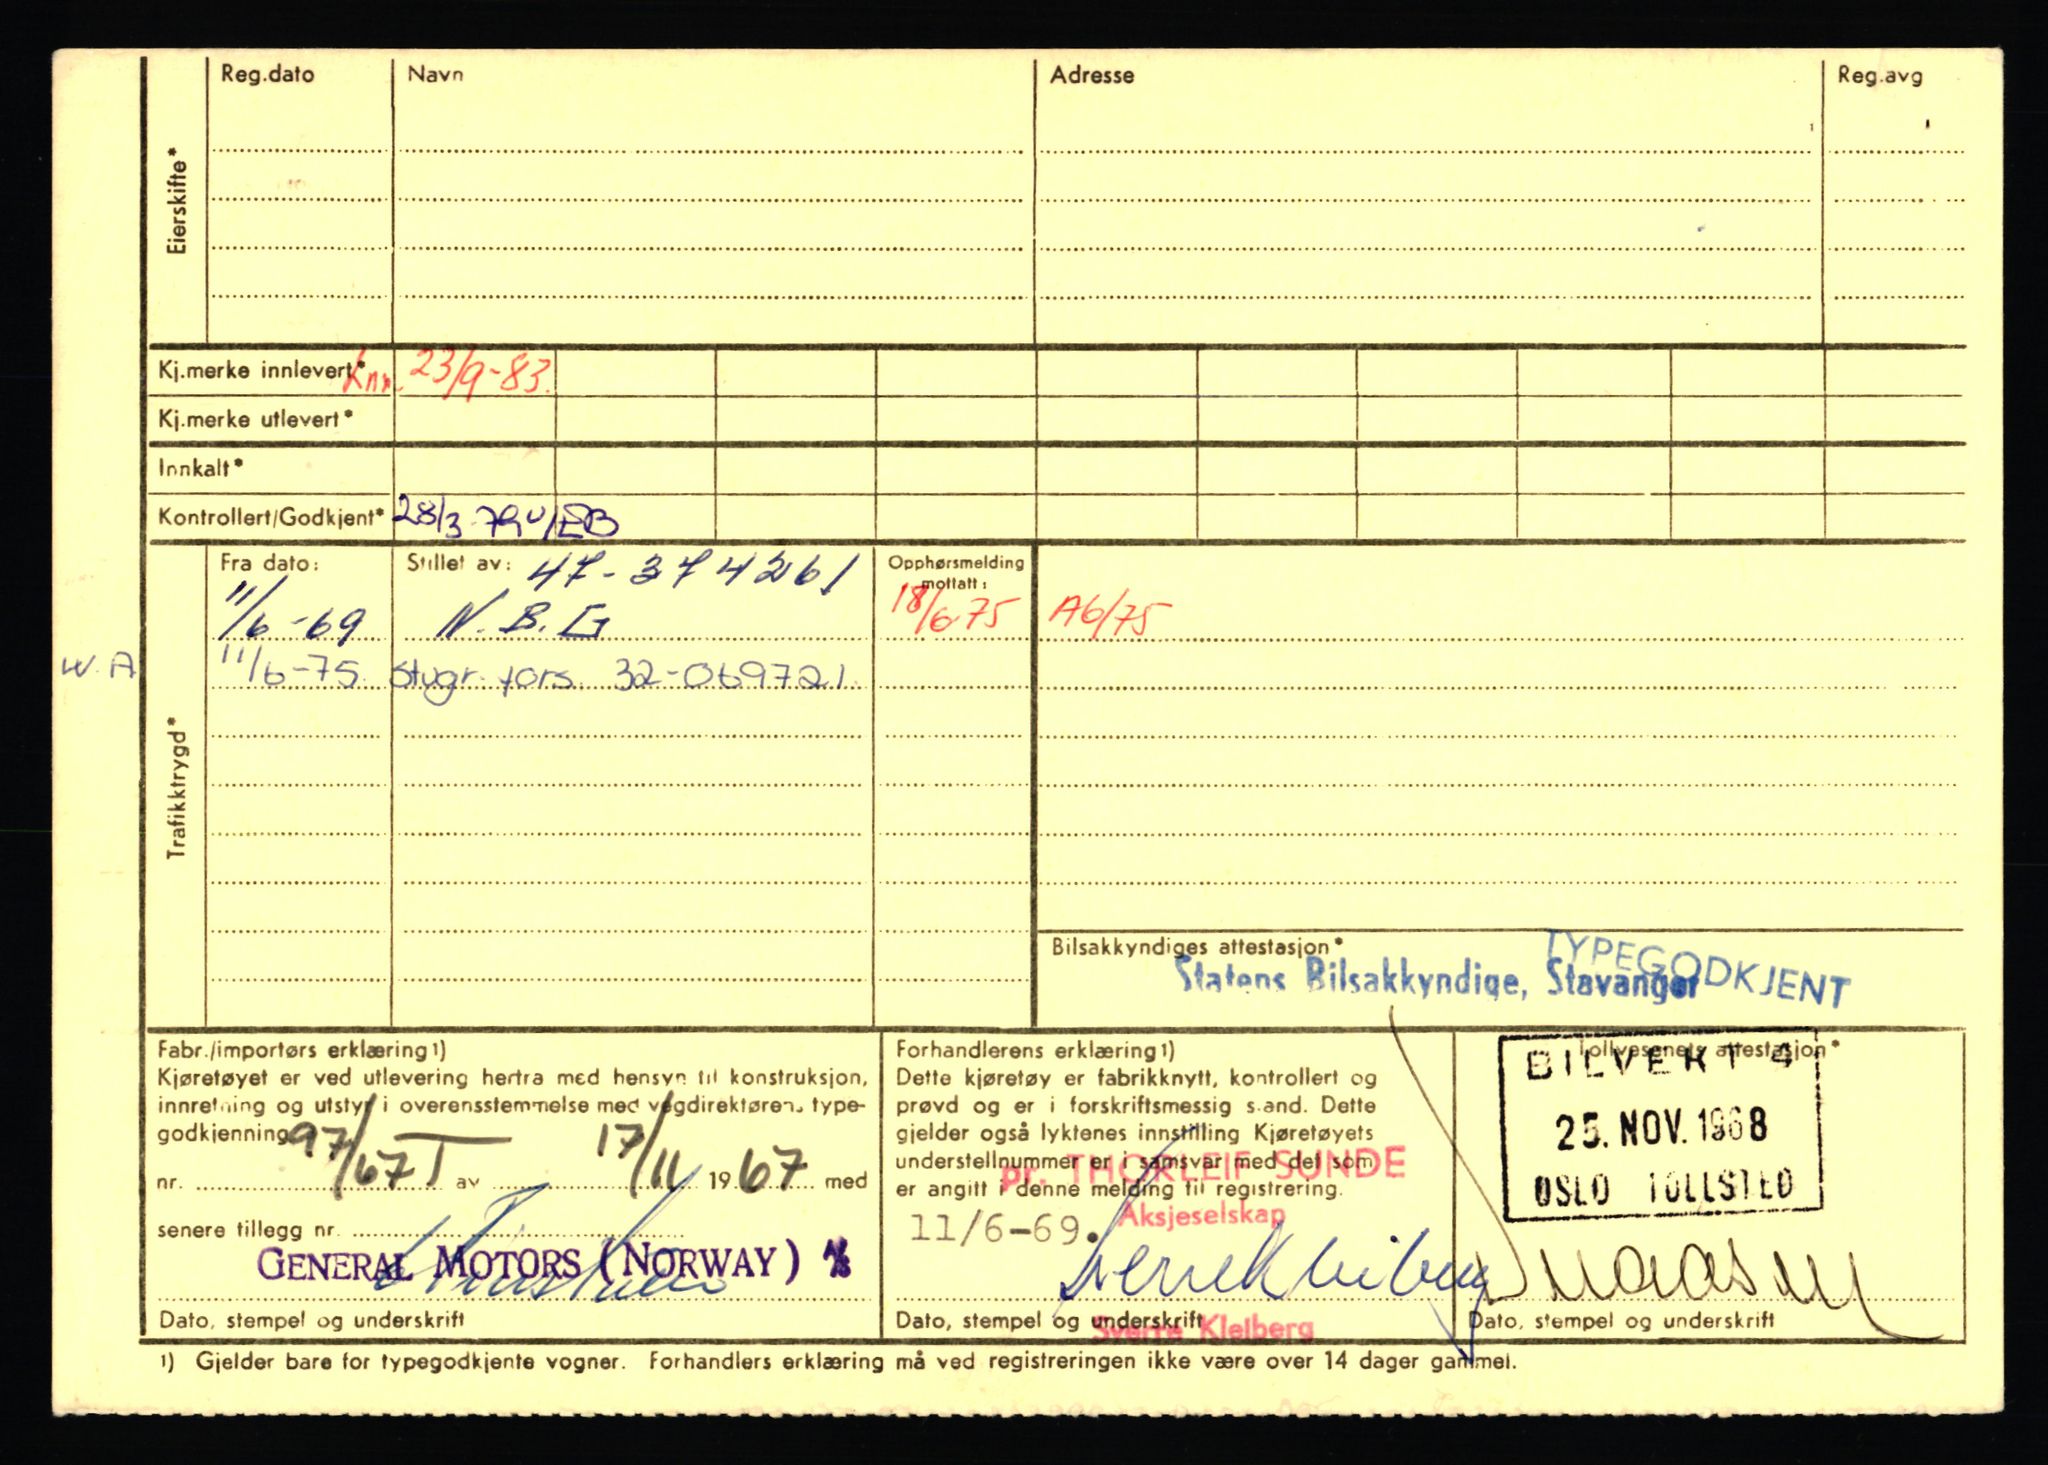 Reg.dato Navn Adresse Reg.avg
Eierskifte*
Kj.merke innlevert* 23/9-83.
Kj.merke utlevert*
Innkalt*
Kontrollert/Godkjent* 28/3-79
Trafikktrygd*
Fra dato: Stillet av: 47-374261 Opphørsmelding mottatt:
11/6-69 N.B.G 18/6-75 A6/75
W.A 11/6-75. stvgr. fors. 32-069721.
Bilsakkyndiges attestasjon*
TYPEGODKJENT
Statens Bilsakkyndige, Stavanger
Fabr./importørs erklæring 1)
Kjøretøyet er ved utlevering herfra med hensyn til konstruksjon,
innretning og utstyr i overensstemmelse med vegdirektørens type-
godkjenning
nr. 97/67T av 17/11 1967 med
senere tillegg nr.
GENERAL MOTORS (NORWAY) A/S
Dato, stempel og underskrift
Forhandlerens erklæring 1)
Dette kjøretøy er fabrikknytt, kontrollert og
prøvd og er i forskriftsmessig stand. Dette
gjelder også lyktenes innstilling Kjøretøyets
understellnummer er i samsvar med det som
er angitt i denne melding til registrering.
pr. THORLEIF SUNDE
Aksjeselskap
11/6-69.
Dato, stempel og underskrift
Sverre Kleiberg
Tollvesenets attestasjon*
BILVERT 4
25. NOV. 1968
OSLO TOLLSTED
Dato, stempel og underskrift
1) Gjelder bare for typegodkjente vogner. Forhandlers erklæring må ved registreringen ikke være over 14 dager gammel.